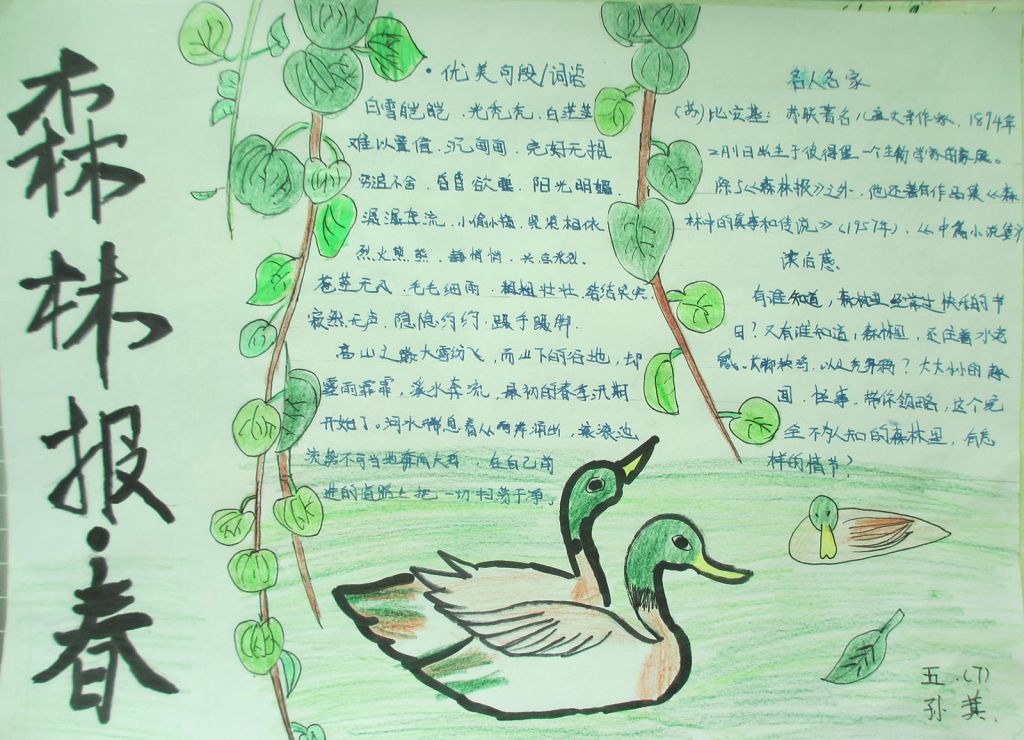 森林报·春
·优美句段/词语
白雪皑皑、光秃秃、白茫茫
难以置信、沉甸甸、完好无损
穷追不舍、昏昏欲睡、阳光明媚、
小偷小摸、紧紧相依、
烈火熊熊、静悄悄、
毛毛细雨、粗粗壮壮、结结实实、
寂然无声、隐隐约约、蹑手蹑脚、
高山之巅大雪纷飞，而山下的谷地，却
霏霏，溪水奔流，最初的春季汛期
开始了。河水喘息着从两岸涌出，滚滚
洪势不可当地奔向大海，在自己前
进的道路上把一切扫荡干净。
名人名家
(苏)比安基：苏联著名儿童文学作家，1894年
2月11日出生于彼得堡一个生物学家的家庭。
除了《森林报》之外，他还著有作品集《森
林中的真事和传说》(1957年)，《中篇小说集》
读后感
有谁知道，森林里经常过快乐的节
日？又有谁知道，森林里，还住着水老
大大小小的趣
闻、怪事，带你领略，这个完
全不为人知的森林里，有怎
样的情节？
五(7)
孙